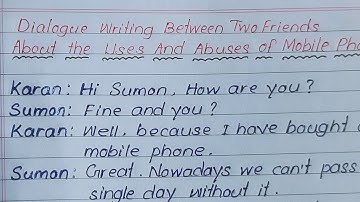 Dialogue Writing Between Two Friends
About the Uses And Abuses of Mobile Pho
Karan: Hi Sumon. How are you?
Sumon: Fine and you?
Karan: Well, because I have bought a
mobile phone.
Sumon: Great. Nowadays we can't pass
single day without it.